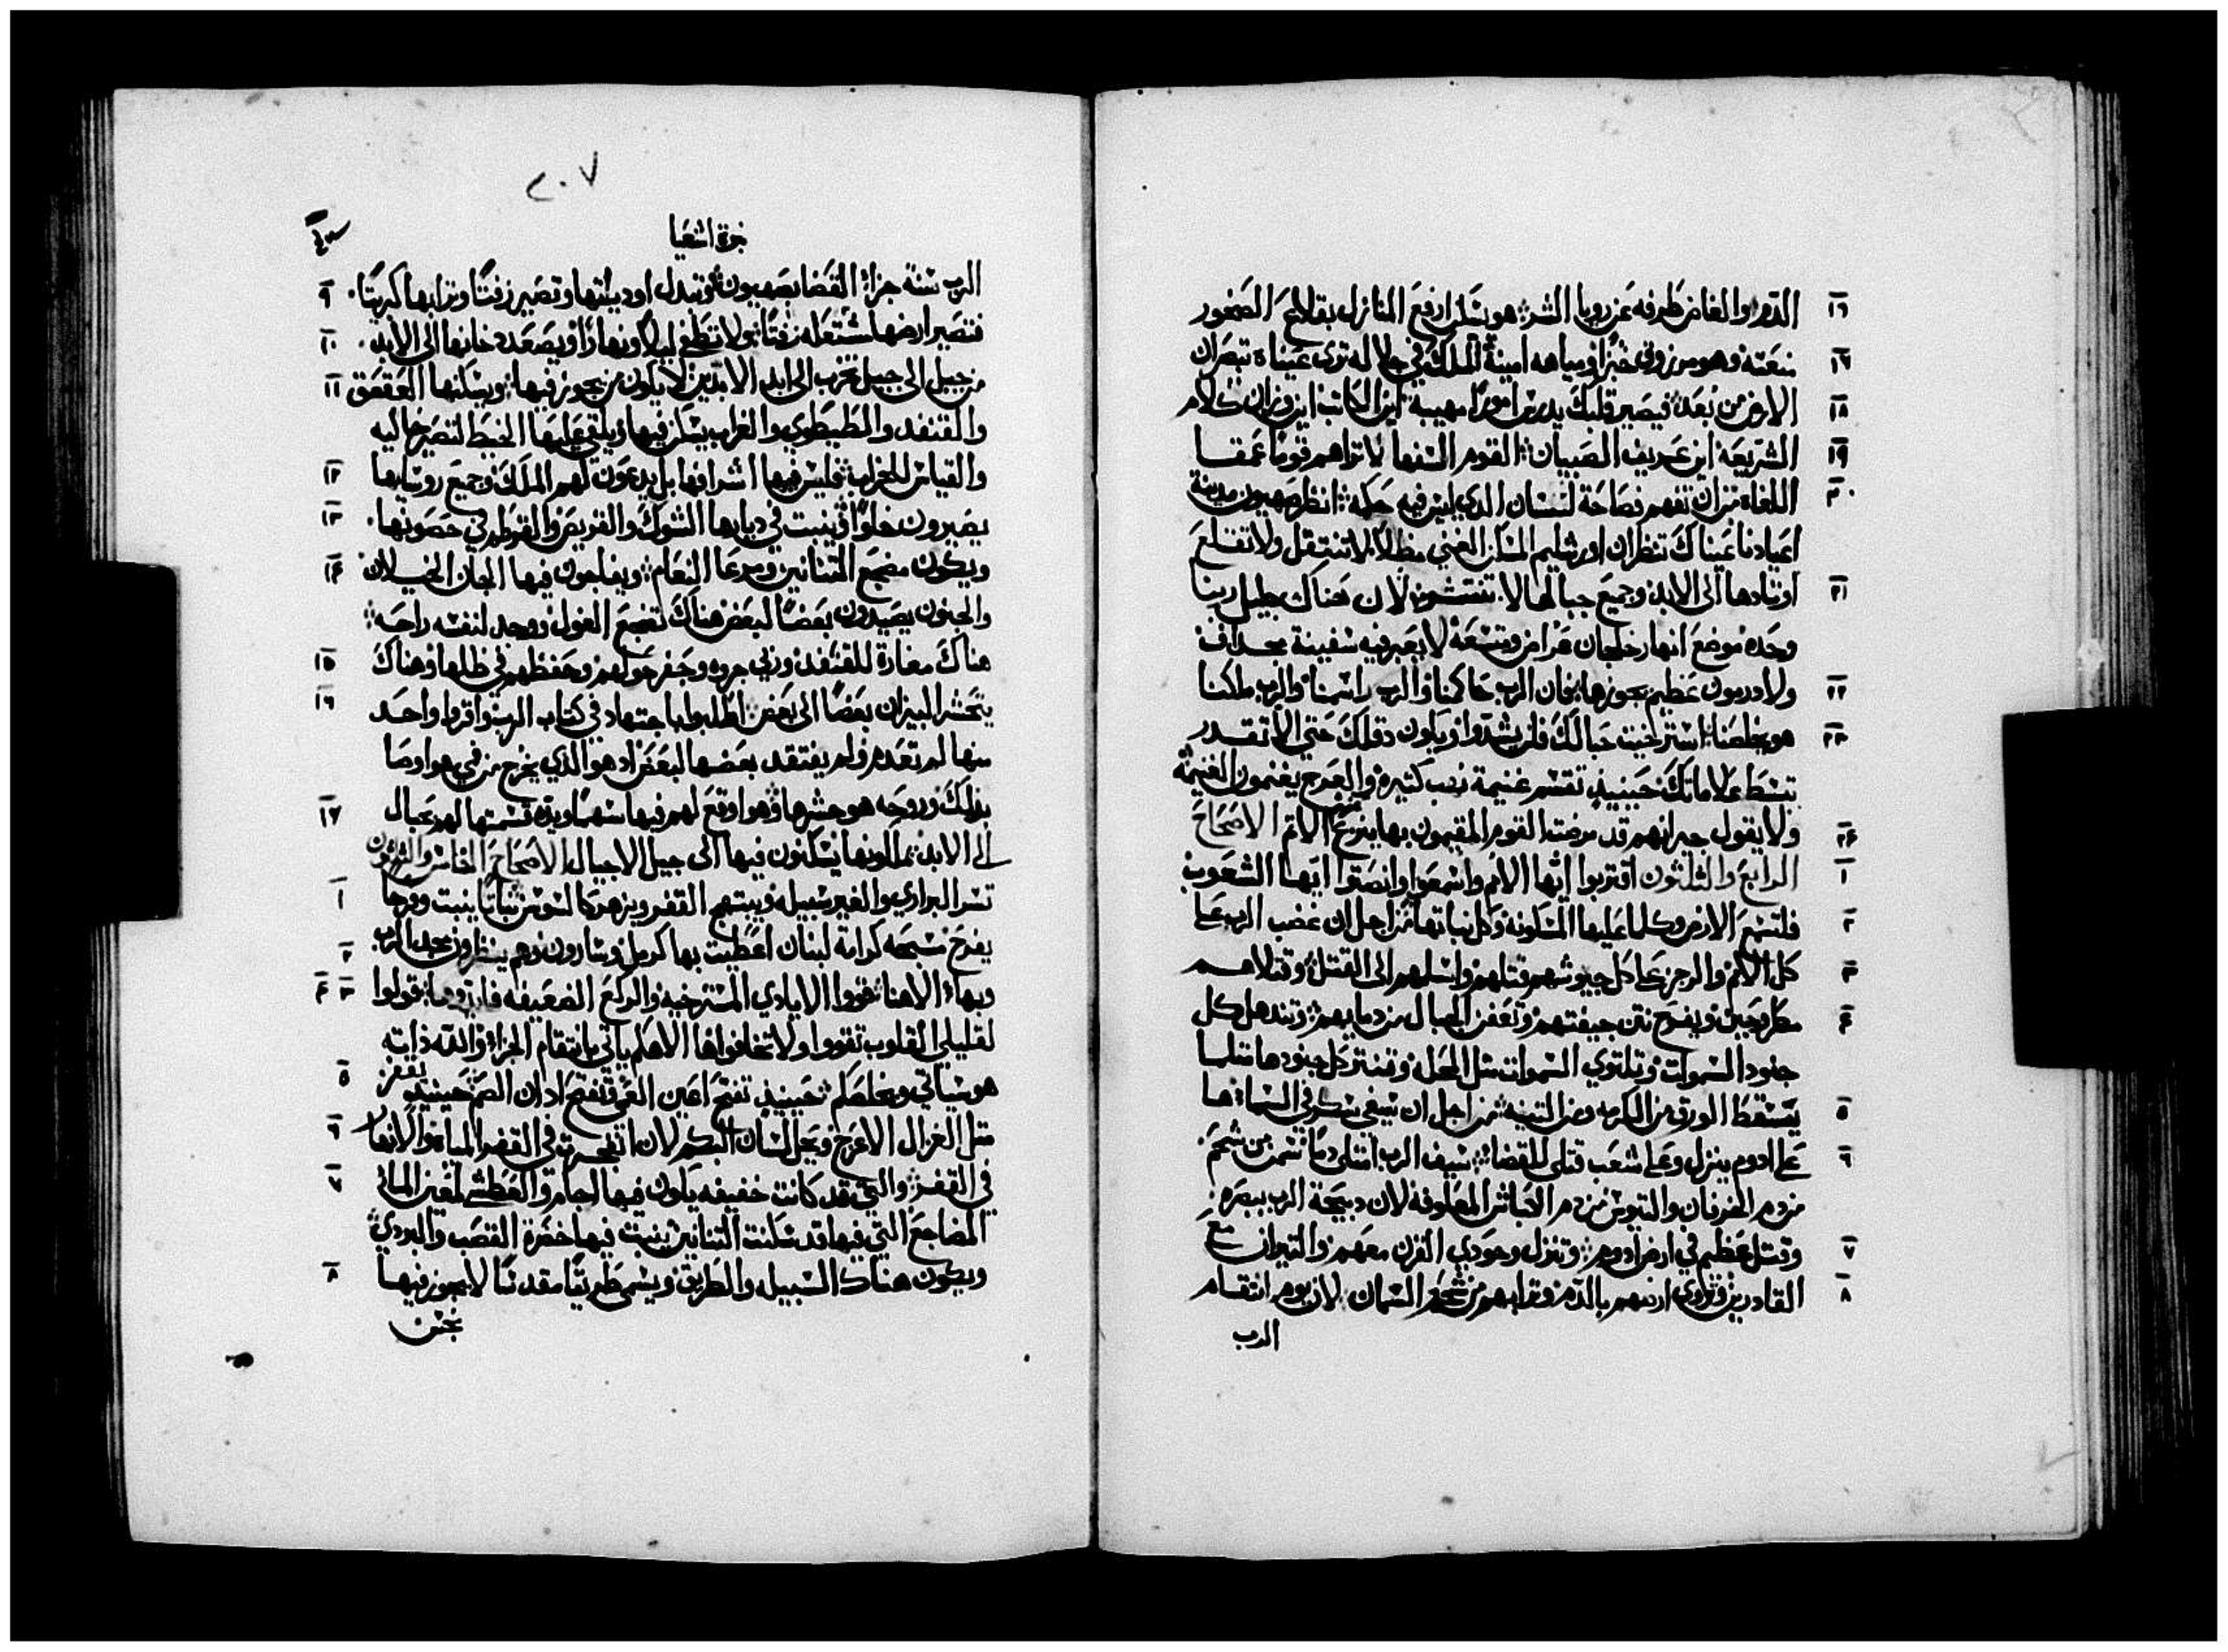 ١٦ الدم والغامض طرفه عن رويا الشر هو يسكن ارفع المنازل بقلايع الصخور
١٧ منعته وهو مرزوق خبزا ومياهه امينة الملك في جلاله ترى عيناه تبصران
١٨ الارض من بعد فيصير قلبك يدرس امورا مهيبة اين الكاتب اين وزان كلام
١٩ الشريعة اين عريف الصبيان القوم السفها لا تراهم قوما عمقا
٢٠ اللغاه من ان تفهم فصاحة لسان الذي ليس فيه حكمه انظر صهيون مدينة
اعيادنا عيناك تنظران اورشليم المسكن الغني مظلا لا تنتقل ولا تقلع
٢١ اوتادها الى الابد وجميع حبالها لا تنتشون لان هناك جليل ربنا
وحده موضع انهار خلجان عراض وتسعة لا يعبر فيه سفينة بمجداف
٢٢ ولا دربون عظيم يجوزها فان الرب حاكمنا والرب راسمنا والرب ملكنا
٢٣ هو يخلصنا استرخيت حبالك فلن يشدوا ويكون دقلك حتي الا تقدر
تبسط علاماتك حينيذ تقسم غنيمة نهب كثيرة والعرج يغنمون الغنيمة
٢٤ ولا يقول جيرانهم قد مرضت القوم المقيمون بها ينزع الاثم الاصحاح
١ الرابع والثلثون اقتربوا ايها الامم واسمعوا وانصتوا ايها الشعوب
٢ فلتسمع الارض وكلما عليها المسكونة وكل نباتها من اجل ان غضب الرب على
٣ كل الامم والرجز على كل جيوشهم قتلهم واسلمهم الى القتل وقتلاهم
٤ مطروحين ويفوح نتن جيفتهم وتعفن الجبال من دمايهم وتندهل كل
جنود السموات وتلتوي السموات مثل المجلة وتنتر كل جنودها مثلما
٥ يسقط الورق من الكرمه ومن التينه من اجل ان سيفي سكر في السما ها
٦ على ادوم ينزل وعلى شعب قتلى للقضا سيف الرب امتلى دما تسمن من شحم
من دم الخرفان والتيوس من دم الكباش المعلوفة لان دبيحة الرب ببصره
٧ وقتل عظيم في ارض ادوم وتنزل وحودي القرن معهم والتيران مع
٨ القادرين وتروى ارضهم بالدم وترابهم من شحم السمان لان يوم انتقام
الرب
٢٠٧
نبوة اشعيا
الرب سنة جزا القضا بصهيون وتبدل اوديتها وتصير زفتا وترابها كبريتا ٩
فتصير ارضها مشتعله زفتا ولا تطفي ليلا ونهارا ويصعد دخانها الى الابد ١٠
من جيل الى جيل تخرب الى ابد الابدين لا يكون من يجوز فيها ويسكنها العقعق ١١
والقنفد والطيطوي والغراب يسكن فيها ويلقى عليها الخيط لتصير خاليه
والقياس للخراب فليس فيها اشرافها بل يدعون لهم الملك وجميع روسايها ١٢
يصيرون خلوا وينبت في ديارها الشوك والقريص والقرطم في حصونها ١٣
ويكون مضجع التنانين ومرعا النعام ويفاجون فيها الجان الخيلان ١٤
والجنون يصيدون بعضا لبعض هناك تضجع الغول ووجد لنفسه راحة
هناك مغارة للقنفد وربي جروه وحفر حولهم وحفظهم في ظلها وهناك ١٥
يتحشر البيزان بعضا الى بعض اطلبوا باجتهاد في كتاب الرب واقروا واحد ١٦
منها لم تعدم ولم يفتقد بعضها لبعض اد هو الذي يخرج من في هو اوصا
بذلك وروحه هو حشرها وهو اوقع لهم فيها سهما ويده قسمتها لهم بحبال ١٧
الى الابد يملكونها يسكنون فيها الى جيل الاجيال الاصحاح الخامس والثلثون
تسر البراري والغير سبيله ويبتهج القفر ويزهر كالسوسن نباتا ينبت وفرحا ١
يفرح مسبحه كرامة لبنان اعطيت بها كرمل وسارون هم ينظرون مجد الرب ٢
وبها الاهنا قووا الايادي المسترخيه والركع الضعيفه فايدوها قولوا ٣ ٤
لقليلي القلوب تقووا ولا تخافوا ها الاهكم ياتي بانتقام الجزا والله ذاته
هو سياتي ويخلصكم حينيذ تفتح اعين العمي وتفتح ادان الصم حينيذ يقفز ٥
مثل الغزال الاعرج ويحل لسان البكم لان انفجرت في القفر المياه والانهار ٦
في القفر والتي قد كانت خفيفه يكون فيها اجام والعطشى لمعين الما في ٧
المضاجع التي فيها قد سكنت التنانين ينبت فيها خضرة القصب والبردي
ويكون هناك السبيل والطريق ويسمى طريقا مقدسا لا يجوز فيها ٨
نجس